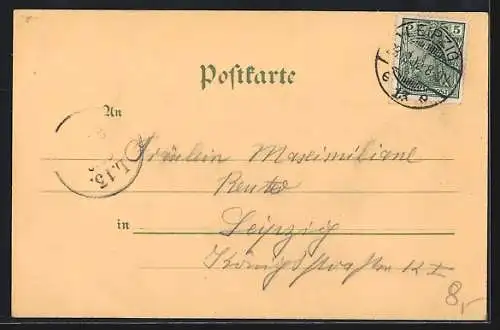 LEIPZIG
5 5
Postkarte
An
L.15.
Fräulein Maximiliane
Reuter
in Leipzig
Königsstraße
8,-